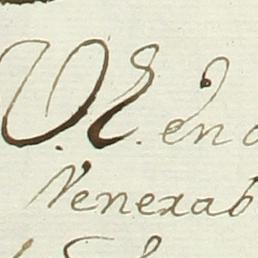 V.E. en
Venerab